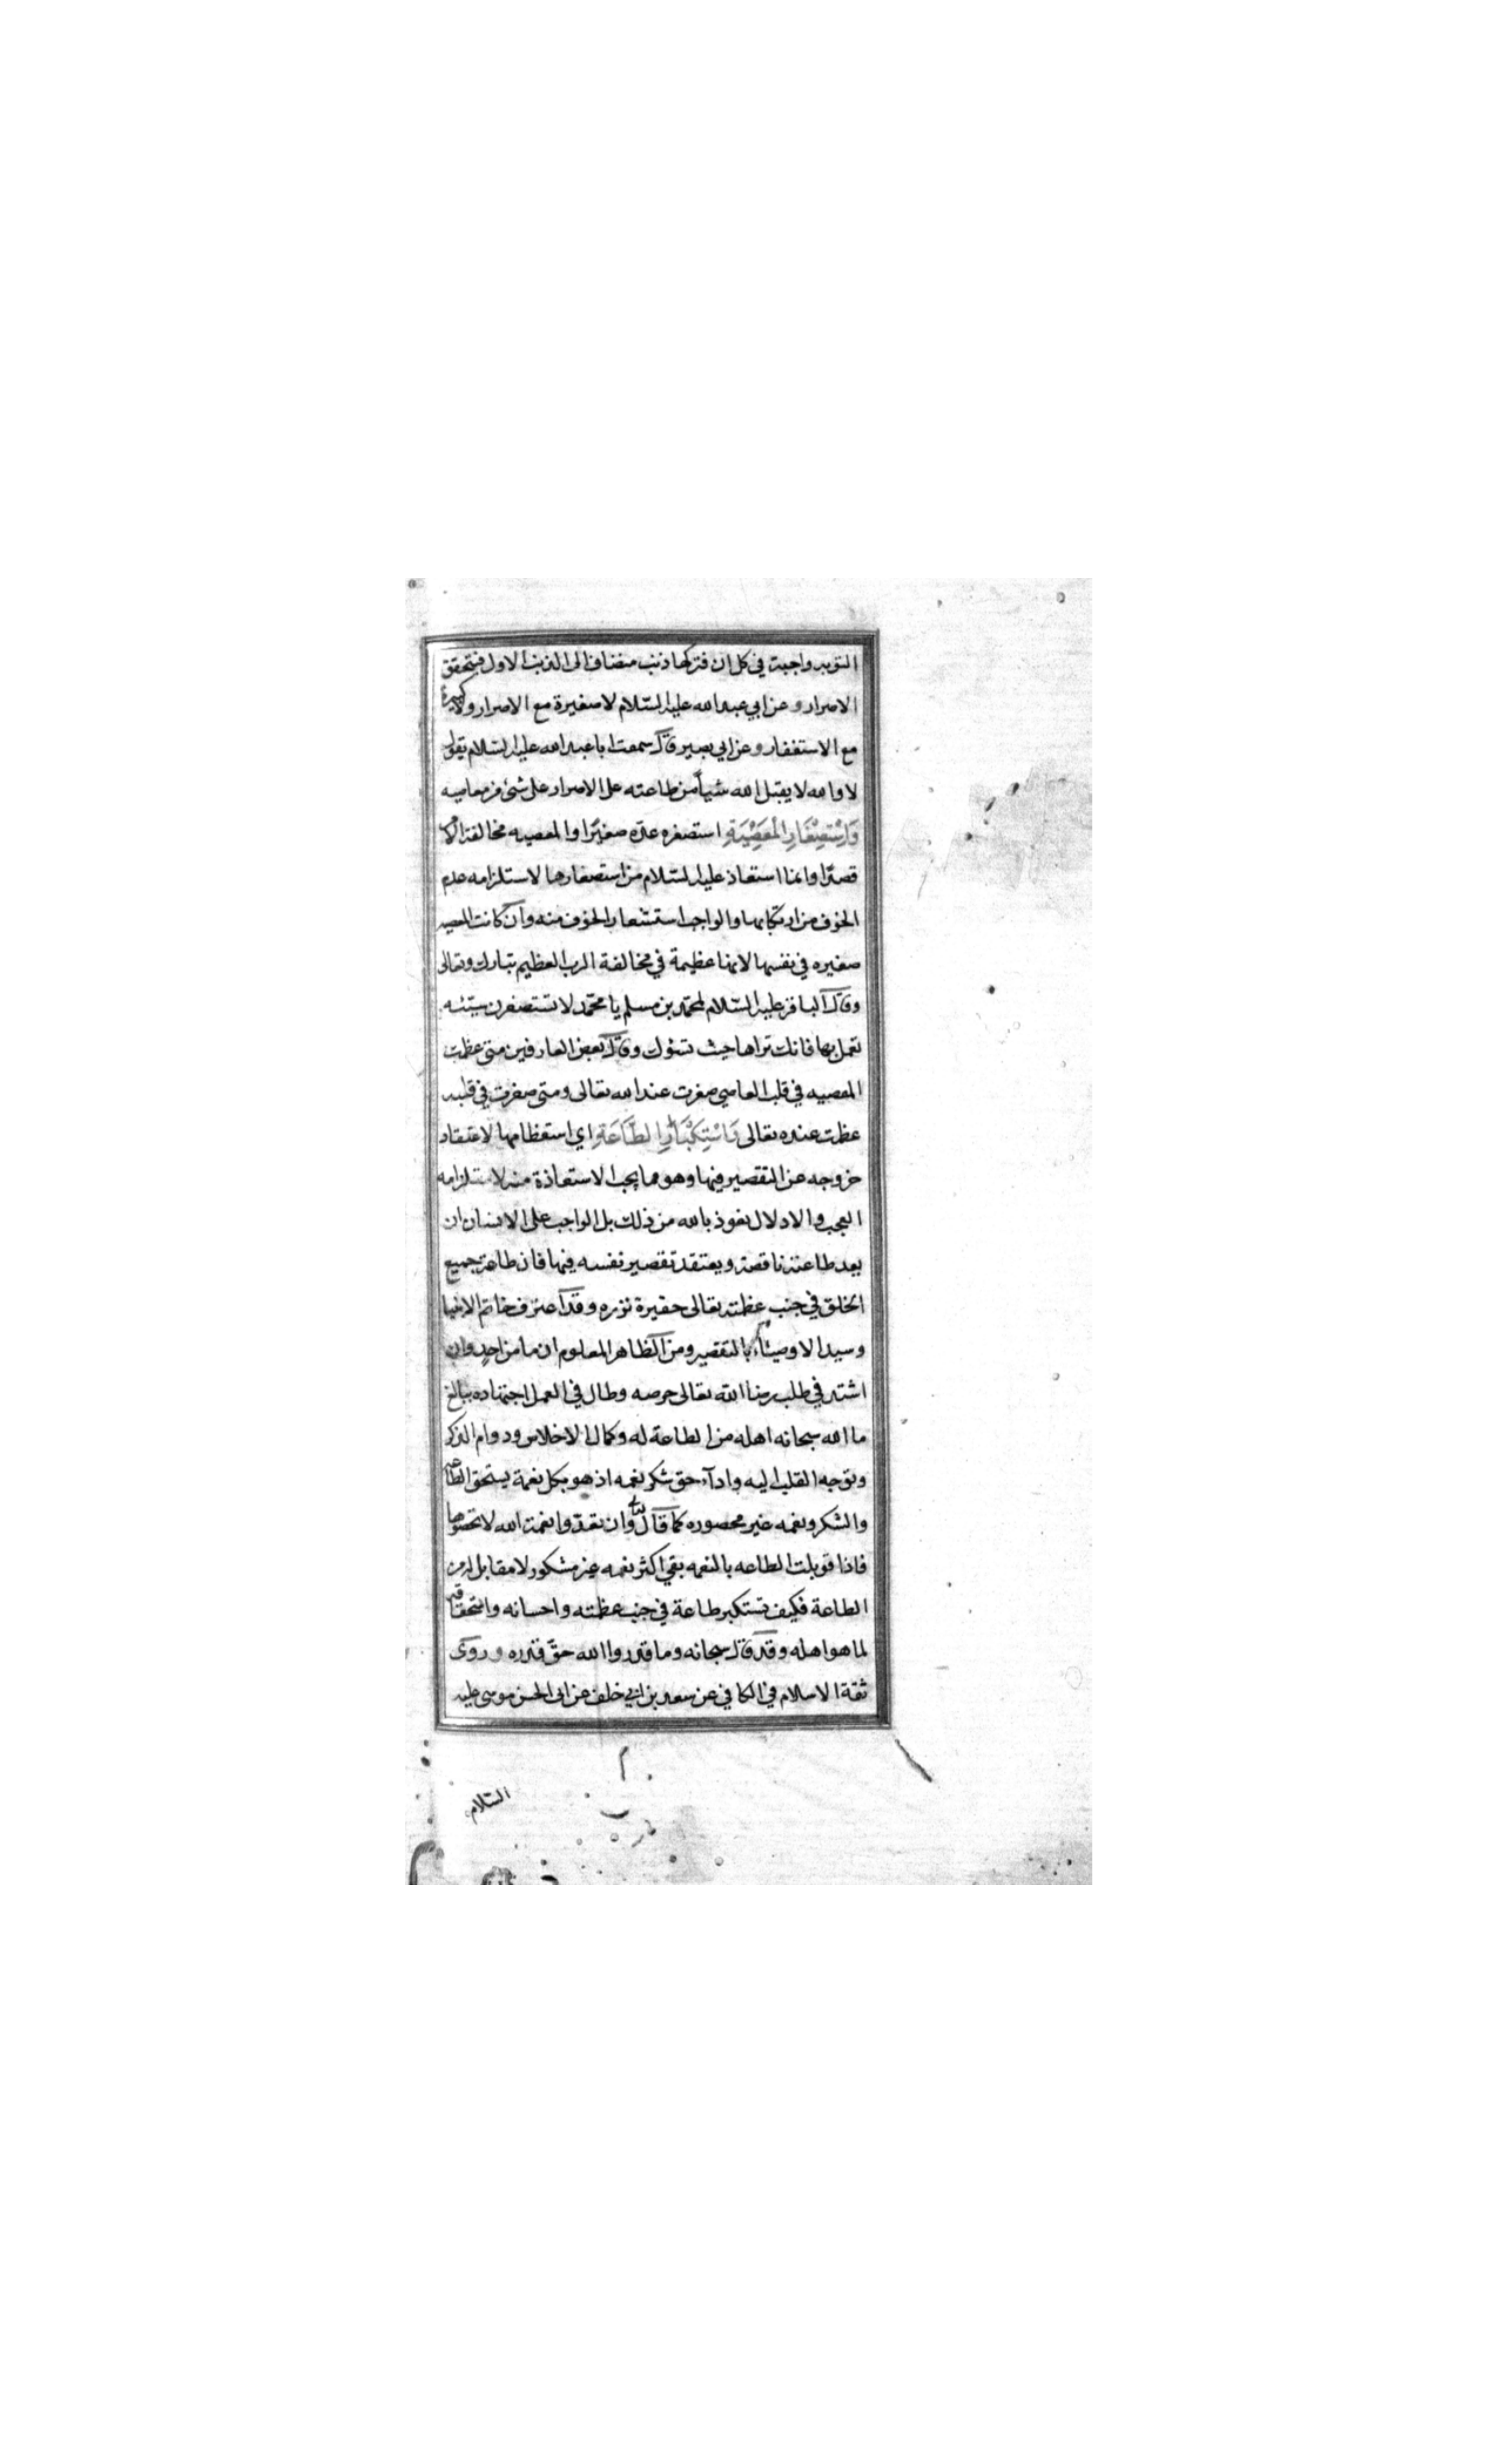 التوبه واجبة في كل ان فتركها ذنب منضاف الى الذنب الاول فيتحقق
الاصرار وعن ابي عبد الله عليه السّلام لا صغيرة مع الاصرار ولا كبيرة
مع الاستغفار وعن ابي بصير قال سمعت ابا عبد الله عليه السّلام يقول
لا والله لا يقبل الله شيأً من طاعته على الاصرار على شئ من معاصيه
وَاسْتِصْغَارِ المَعْصِيَةِ استصغره عدّه صغيرًا والمعصيه مخالفة الامر
قصدًا وانما استعاذ عليه السّلام من استصغارها لاستلزامه عدم
الخوف من ارتكابها والواجب استشعار الخوف منه وان كانت المعصيه
صغيره في نفسها لانها عظيمة في مخالفة الرب العظيم تبارك وتعالى
وقال الباقر عليه السّلام لمحمّد بن مسلم يا محمّد لا تستصغرن سيئه
تعمل بها فانك تراها حيث تسؤك وقال بعض العارفين متى عظمت
المعصيه في قلب العاصي صغرت عند الله تعالى ومتى صغرت في قلبه
عظمت عنده تعالى وَاسْتِكْبَارِ الطَّاعَةِ اي استعظامها لاعتقاد
خروجه عن التقصير فيها وهو مما يجب الاستعاذة منه لاستلزامه
العجب والادلال نعوذ بالله من ذلك بل الواجب على الانسان ان
يعد طاعته ناقصة ويعتقد تقصير نفسه فيها فان طاعة جميع
الخلق في جنب عظمته تعالى حقيرة نزره وقد اعترف خاتم الانبيا
وسيد الاوصيآء بالتقصير ومن الظاهر المعلوم ان ما من احدٍ وان
اشتد في طلب رضا الله تعالى حرصه وطال في العمل اجتهاده ببالغ
ما الله سبحانه اهله من الطاعة له وكمال الاخلاص ودوام الذكر
وتوجه القلب اليه وادآء حق شكر نعمه اذ هو بكل نعمة يستحق الطاعه
والشكر ونعمه غير محصوره كما قال تعالى وان تعدّوا نعمت الله لا تحصوها
فاذا قوبلت الطاعه بالنعمه بقي اكثر نعمه غير مشكور لا مقابل له من
الطاعة فكيف تستكبر طاعة في جنب عظمته واحسانه واستحقاقه
لما هو اهله وقد قال سبحانه وما قدروا الله حقّ قدره وروى
ثقة الاسلام في الكافي عن سعد بن ابي خلف عن ابى الحسن موسى عليه
السّلام